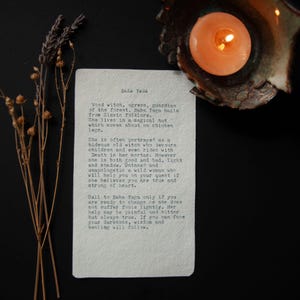 Baba Yaga
Wood witch, ogress, guardian
of the forest. Baba Yaga hails
from Slavic folklore.
She lives in a magical hut
which moves about on chicken
legs.
She is often portrayed as a
hideous old witch who devours
children and even rides with
Death in her mortar. However
she is both good and bad, light
and shadow. Untamed and
unapologetic a wild woman who
will help you on your quest if
she believes you are true and
strong of heart.
Call to Baba Yaga only if you
are ready to change as she does
not suffer fools lightly. Her
help may be painful and bitter
but always true. If you can face
your darkness, wisdom and
healing will follow.